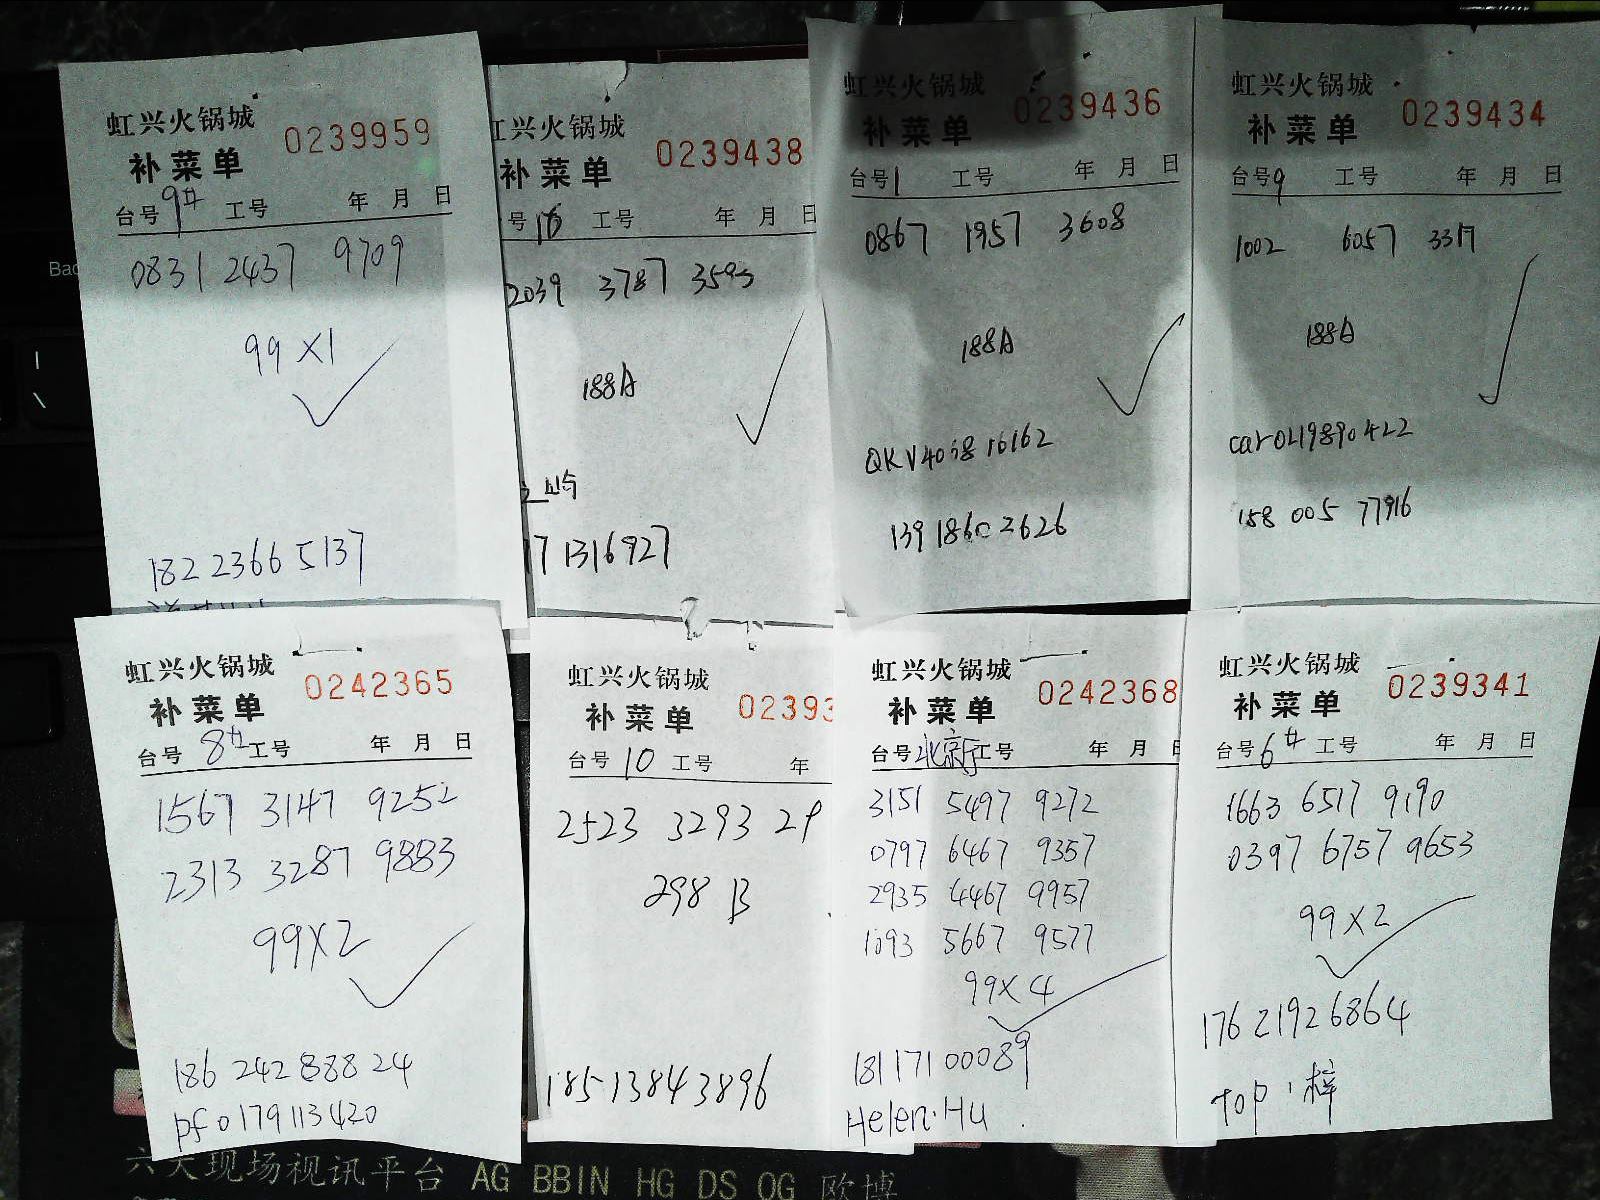 虹兴火锅城 0239959
补菜单
台号 9廾 工号 年 月 日
0831 2437 9709
99 X1
182 2366 5137
工兴火锅城 0239438
补菜单
号 工号 年 月 日
2039 3787 3595
188A
17 1316927
虹兴火锅城 0239436
补菜单
台号 1 工号 年 月 日
0867 1957 3608
188A
139 1860 2626
虹兴火锅城 0239434
补菜单
台号 9 工号 年 月 日
1002 6057 3317
188A
carol19890422
158 005 77916
虹兴火锅城 0242365
补菜单
台号 8廾 工号 年 月 日
1567 3147 9252
2313 3287 9883
99X2
186 242 888 24
pf0179113420
虹兴火锅城
补菜单 02393
台号 10 工号 年
2523 3293 29
298 B
18513843896
虹兴火锅城 0242368
补菜单
台号 北京 工号 年 月 日
3151 5497 9272
0797 6467 9357
2935 4467 9957
1093 5667 9577
99X4
18117100089
Helen.Hu
虹兴火锅城 0239341
补菜单
台号 6廾 工号 年 月 日
1663 6517 9190
0397 6757 9653
99X2
176 21926864
top.梓
六大现场视讯平台 AG BBIN HG DS OG 欧博